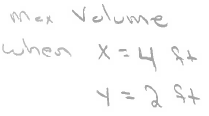 max Volume
when x = 4 ft
y = 2 ft